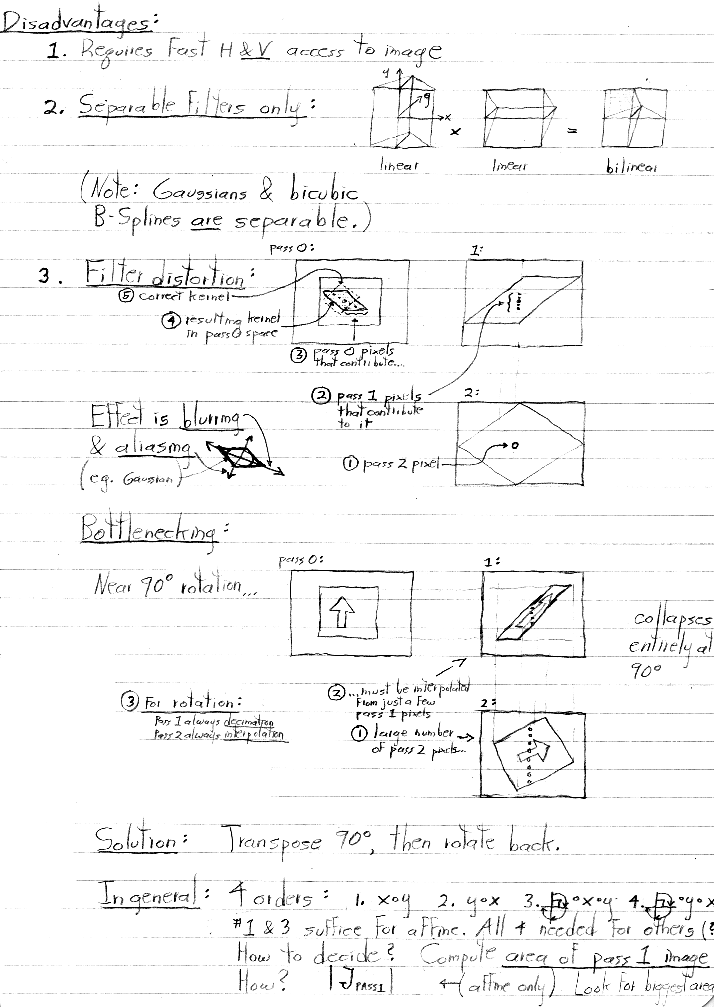 Disadvantages:
1. Requires Fast H & V access to image
2. Separable Filters only:
y
g
x
x
=
linear
linear
bilinear
(Note: Gaussians & bicubic
B-Splines are separable.)
pass 0:
1:
3. Filter distortion:
⑤ correct kernel
④ resulting kernel
in pass 0 space
③ pass 0 pixels
that contribute...
② pass 1 pixels
that contribute
to it
2:
Effect is blurring
& aliasing
(eg. Gaussian)
① pass 2 pixel
Bottlenecking:
pass 0:
1:
Near 90° rotation...
collapses
entirely at
90°
② ...must be interpolated
from just a few
pass 1 pixels
③ For rotation:
Pass 1 always decimation
Pass 2 always interpolation
2:
① large number
of pass 2 pixels...
Solution: Transpose 90°, then rotate back.
In general: 4 orders: 1. x∘y 2. y∘x 3. ∘x∘y 4. ∘y∘x
#1 & 3 suffice for affine. All 4 needed for others (?
How to decide? Compute area of pass 1 image
How? |J PASS1| ← (affine only) Look for biggest area